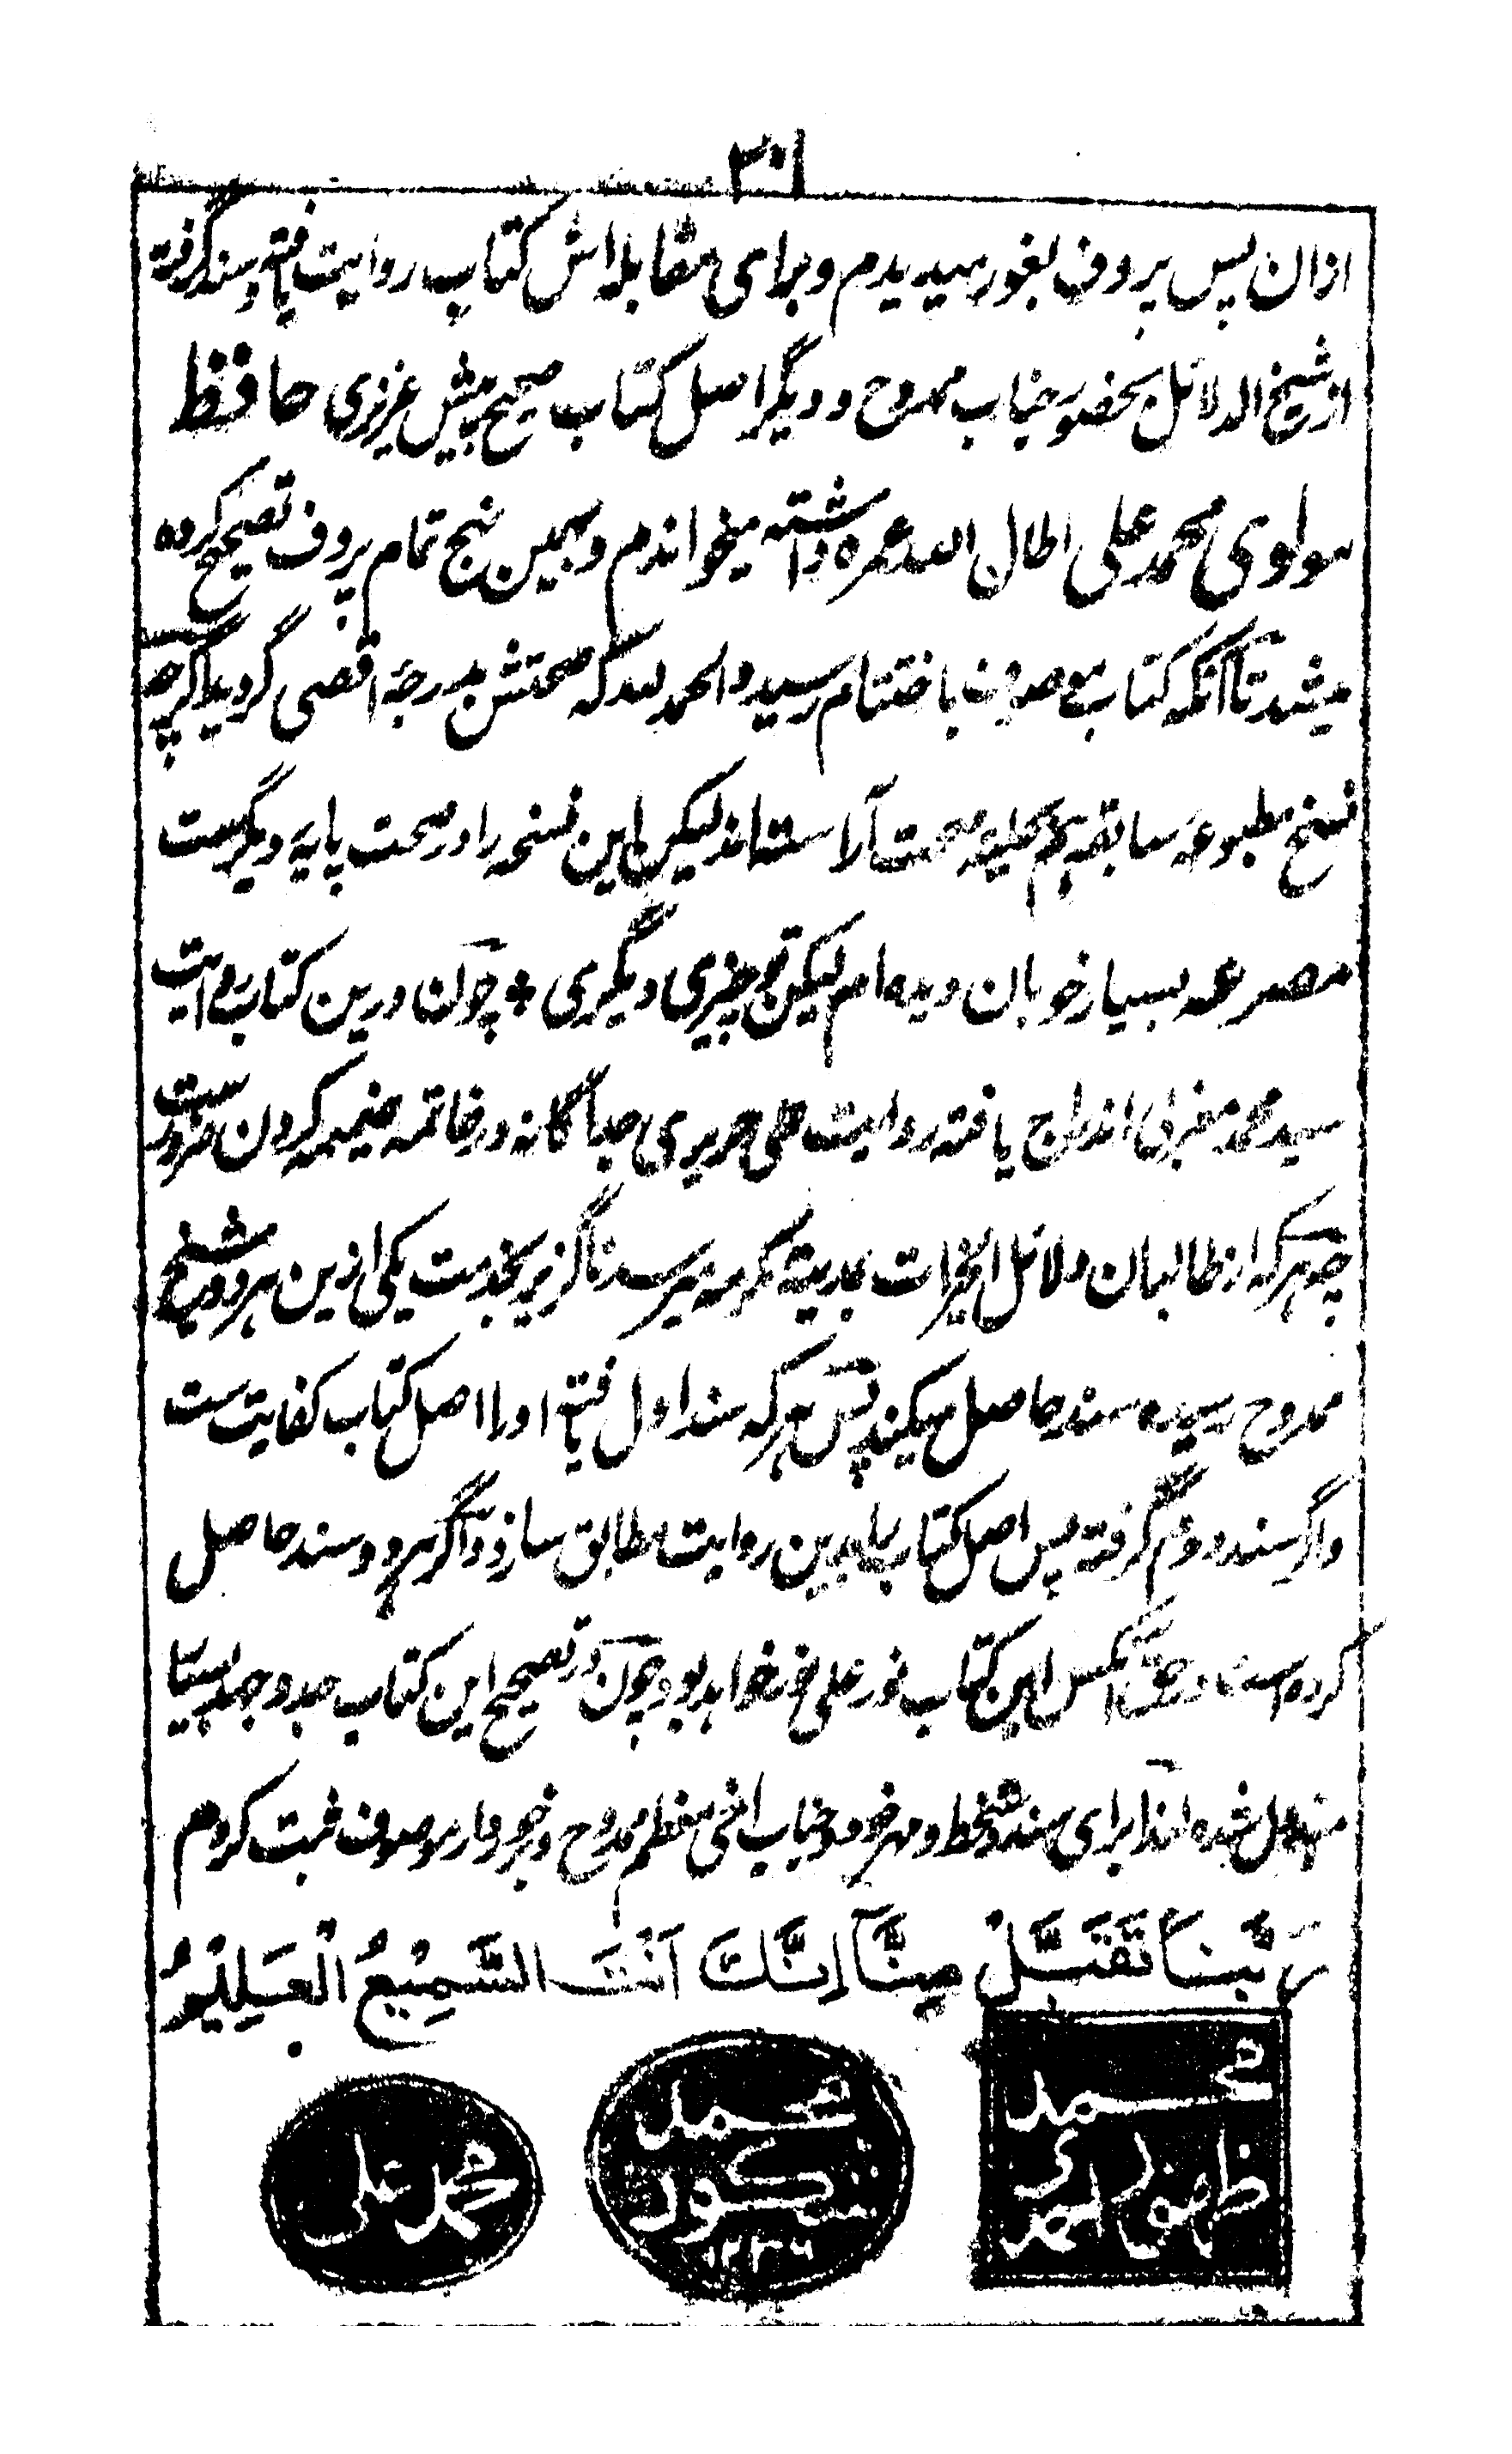 ۳۰۱
ازان پس پروف بغور میدیدم و برای مقابلہ اش کتاب روایت یافتہ و سند گرفتہ
از شیخ الدلائل بحضور جناب ممدوح و دیگر اصل کتاب صحیح پیش عزیزی حافظ
مولوی محمد علی اطال اللہ عمرہ داشتہ میخواندم و بہمین نہج تمام پروف تصحیح کردہ
میشد تا آنکہ کتاب موصوف باختتام رسید و الحمد للہ کہ صحتش بدرجۂ اقصی گردید اگرچہ
نسخ مطبوعہ سابقہ ہم بحلیہ صحت آراستہ اند لیکن این نسخہ را در صحت پایہ دیگرست
مصرعہ بسیار خوبان دیدہ ام لیکن تو چیزی دیگری ٭ چون درین کتاب روایت
سید محمد مغربی اندراج یافتہ روایت علی حریری جداگانہ در خاتمہ ضمیمہ کردن ضرورست
چہ ہر کہ از طالبان دلائل الخیرات بمدینہ مکرمہ میرسد ناگزیر بخدمت یکی ازین ہر دو شیخ
ممدوح رسیدہ سند حاصل میکند پس ہر کہ سند اول یافتہ او را اصل کتاب کفایت ست
و اگر سند دوم گرفتہ پس اصل کتاب را بدین روایت مطابق سازد و اگر ہر دو سند حاصل
کردہ است در حق آنکس این کتاب نور علی نور خواہد بود چون در تصحیح این کتاب جد و جہد بسیار
مبذول شدہ لہذا برای سند دستخط و مہر خود و جناب اخی معظم ممدوح و برخوردار موصوف ثبت کردم
رَبَّنَا تَقَبَّلْ مِنَّآ اِنَّكَ اَنْتَ السَّمِيْعُ الْعَلِيْمُ
محمد ظہور احمدی
محمد شکور
محمد علی